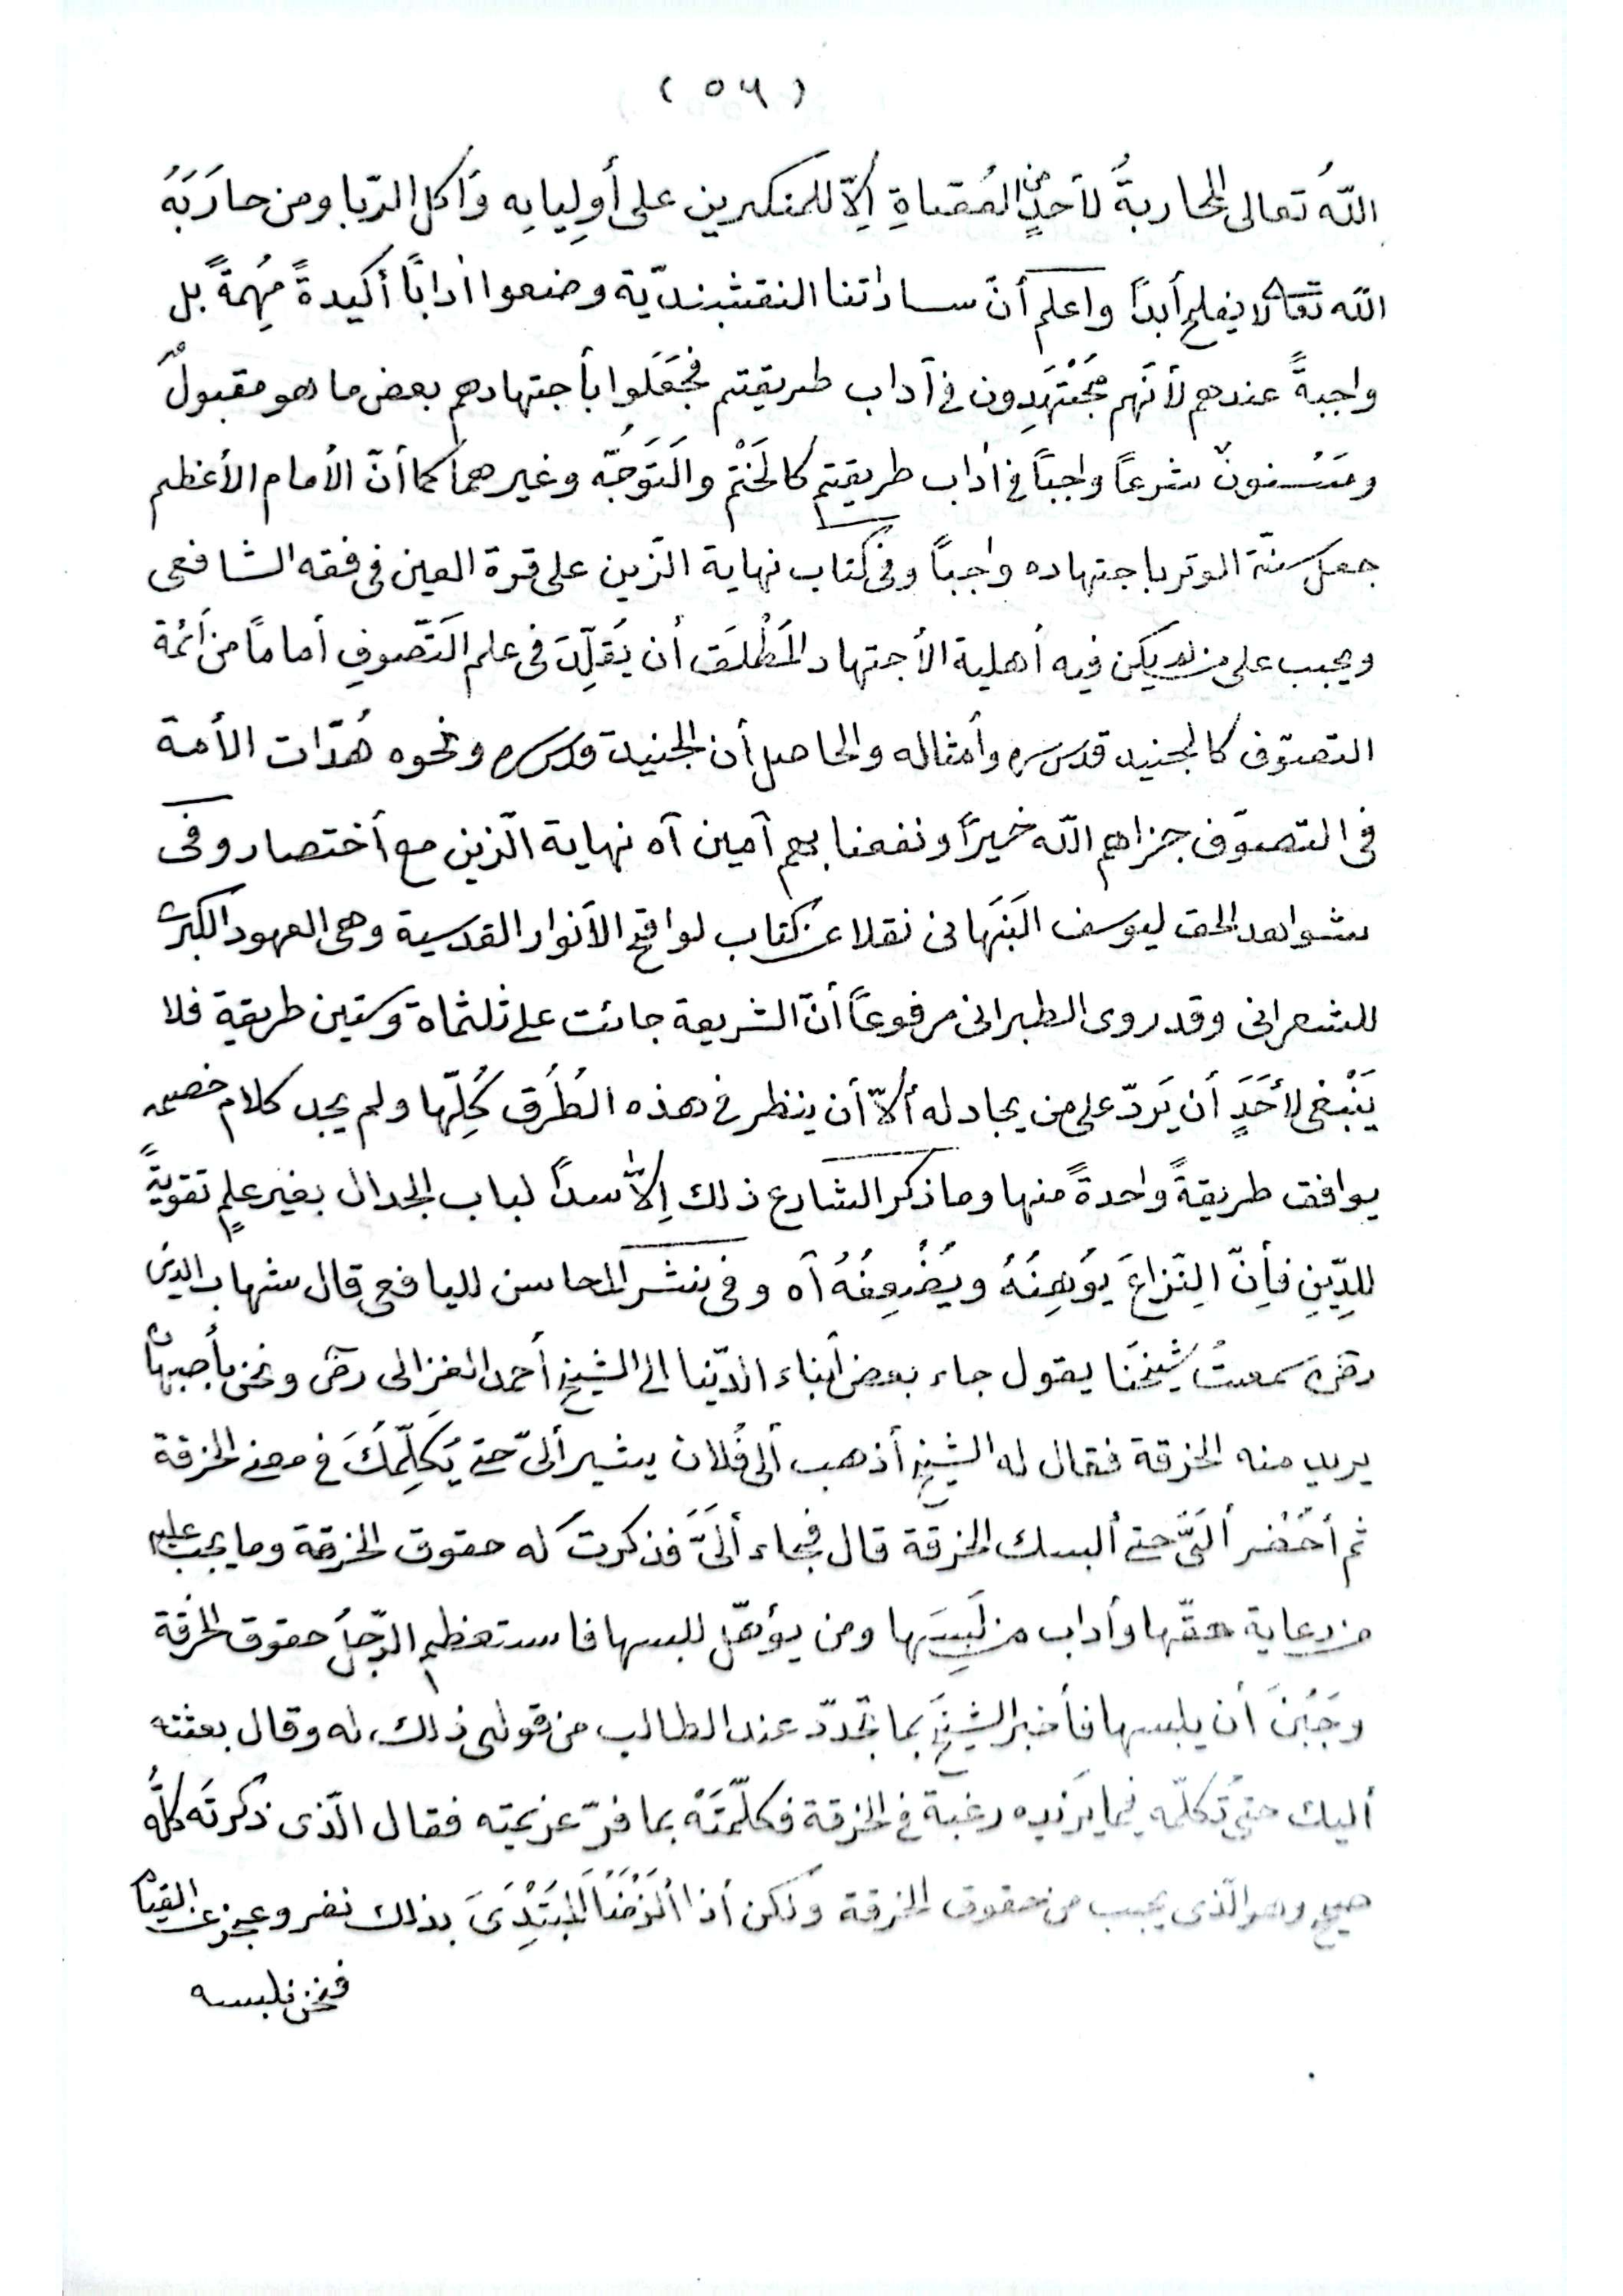 (٥٦)
اللّهُ تعالى المحاربةَ لأحدٍ من العُصاةِ اِلّا للمنكرين على أَولِيايِه وَاٰكل الرّبا ومن حارَبَهُ
اللّه تعالى لا يفلح أبداً واعلم أنّ ساداتنا النقشبنديّة وضعوا اٰداباً أكيدةً مُهِمةً بل
واجبةً عندهم لأنّهم مُجْتَهِدون في آداب طريقتهم فجَعَلوا بأجتهادهم بعض ما هو مقبولٌ
ومَسْنونٌ شرعاً واجباً في اٰداب طريقتهم كالخَتْم والتَوَجّه وغيرهما كما أنّ الأمام الأعظم
جعل سنّة الوتر باجتهاده واجباً وفى كتاب نهاية الزين على قرة العين فى فقه الشافعى
ويجب على من لم يكن فيه أهلية الأجتهاد المُطْلَق أن يُقَلِّدَ فى علم التَصّوفِ أماماً من أئمة
التصوّف كالجنيد قدس سره وأمثاله والحاصل أن الجنيد قدس سره ونحوه هُدّات الأمة
فى التصوّف جزاهم اللّه خيراً ونفعنا بهم آمين آه نهاية الزين مع أختصار وفى
شواهد الحق ليوسف النَبَهانى نقلا عن كتاب لواقح الأنوار القدسية وهى العهود الكبرى
للشعرانى وقد روى الطبرانى مرفوعاً أنّ الشريعة جائت على ثلثماة وستين طريقة فلا
يَنْبَغى لأحَدٍ أن يَردّ على من يجادله ألّا أن ينظر فى هذه الطُرُق كُلِّها ولم يجد كلام خصمه
يوافق طريقةً واحدةً منها وما ذكر الشارع ذلك اِلّا سداً لباب الجدال بغير علمٍ تقويةً
للدِّينِ فأِنّ النِزاعَ يُوْهِنُهُ ويُضْعِفُهُ آه وفى نشر المحاسن لليافعى قال شهاب الدين
رضى سمعتُ شيخَنا يقول جاء بعض أبناء الدّنيا الى الشيخ أحمد الغزالى رضى ونحن بأصبهان
يريد منه الخرقة فقال له الشيخ أذهب ألى فُلان يشير ألىّ حتى يُكَلِّمَكَ فى معنى الخرقة
ثم أحْضُر ألَىَّ حتى ألبسك الخرقة قال فجاء ألَىَّ فَذكرت له حقوق الخرقة وما يجب عليه
من رعاية حقّها وأداب من لَبِسَها ومن يؤهّل للبسها فاستعظم الرّجلُ حقوق الخرقة
وجَبُنَ أن يلبسها فأخبر الشيخَ بما تجدّد عند الطالب من قولى ذلك له وقال بعثته
أليك حتى تُكلّمه فيما يَزيده رغبة فى الخرقة فكلّمْتَهُ بما فرّ عزيمته فقال الّذى ذكرتَه كلُّهُ
صحيح وهو الّذى يجب من حقوق الخرقة ولكن أذا ألْزَمْنَا المُبْتَدِىَ بذلك نفر وعجز عن القيام
فنحن نلبسه